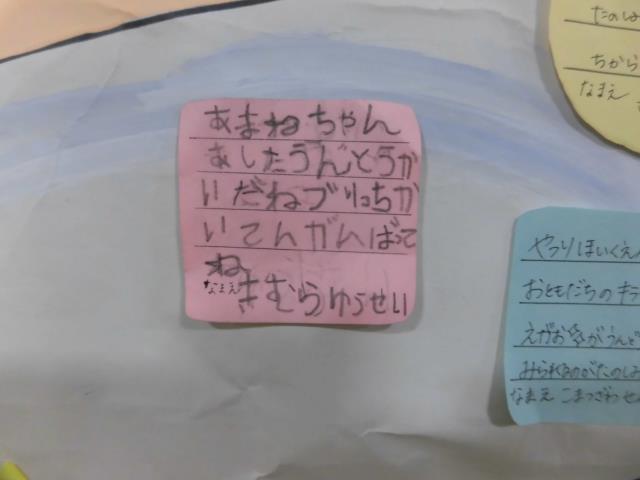 あまねちゃん
あしたうんどうか
いだねブリっちが
いてんがんばって
ね
なまえ きむらゆうせい
たのしみ
ちから
なまえ
やつりほいくえん
おともだちのキラ
えがおがうんど
みられるのがたのしみ
なまえ こまつざわせん